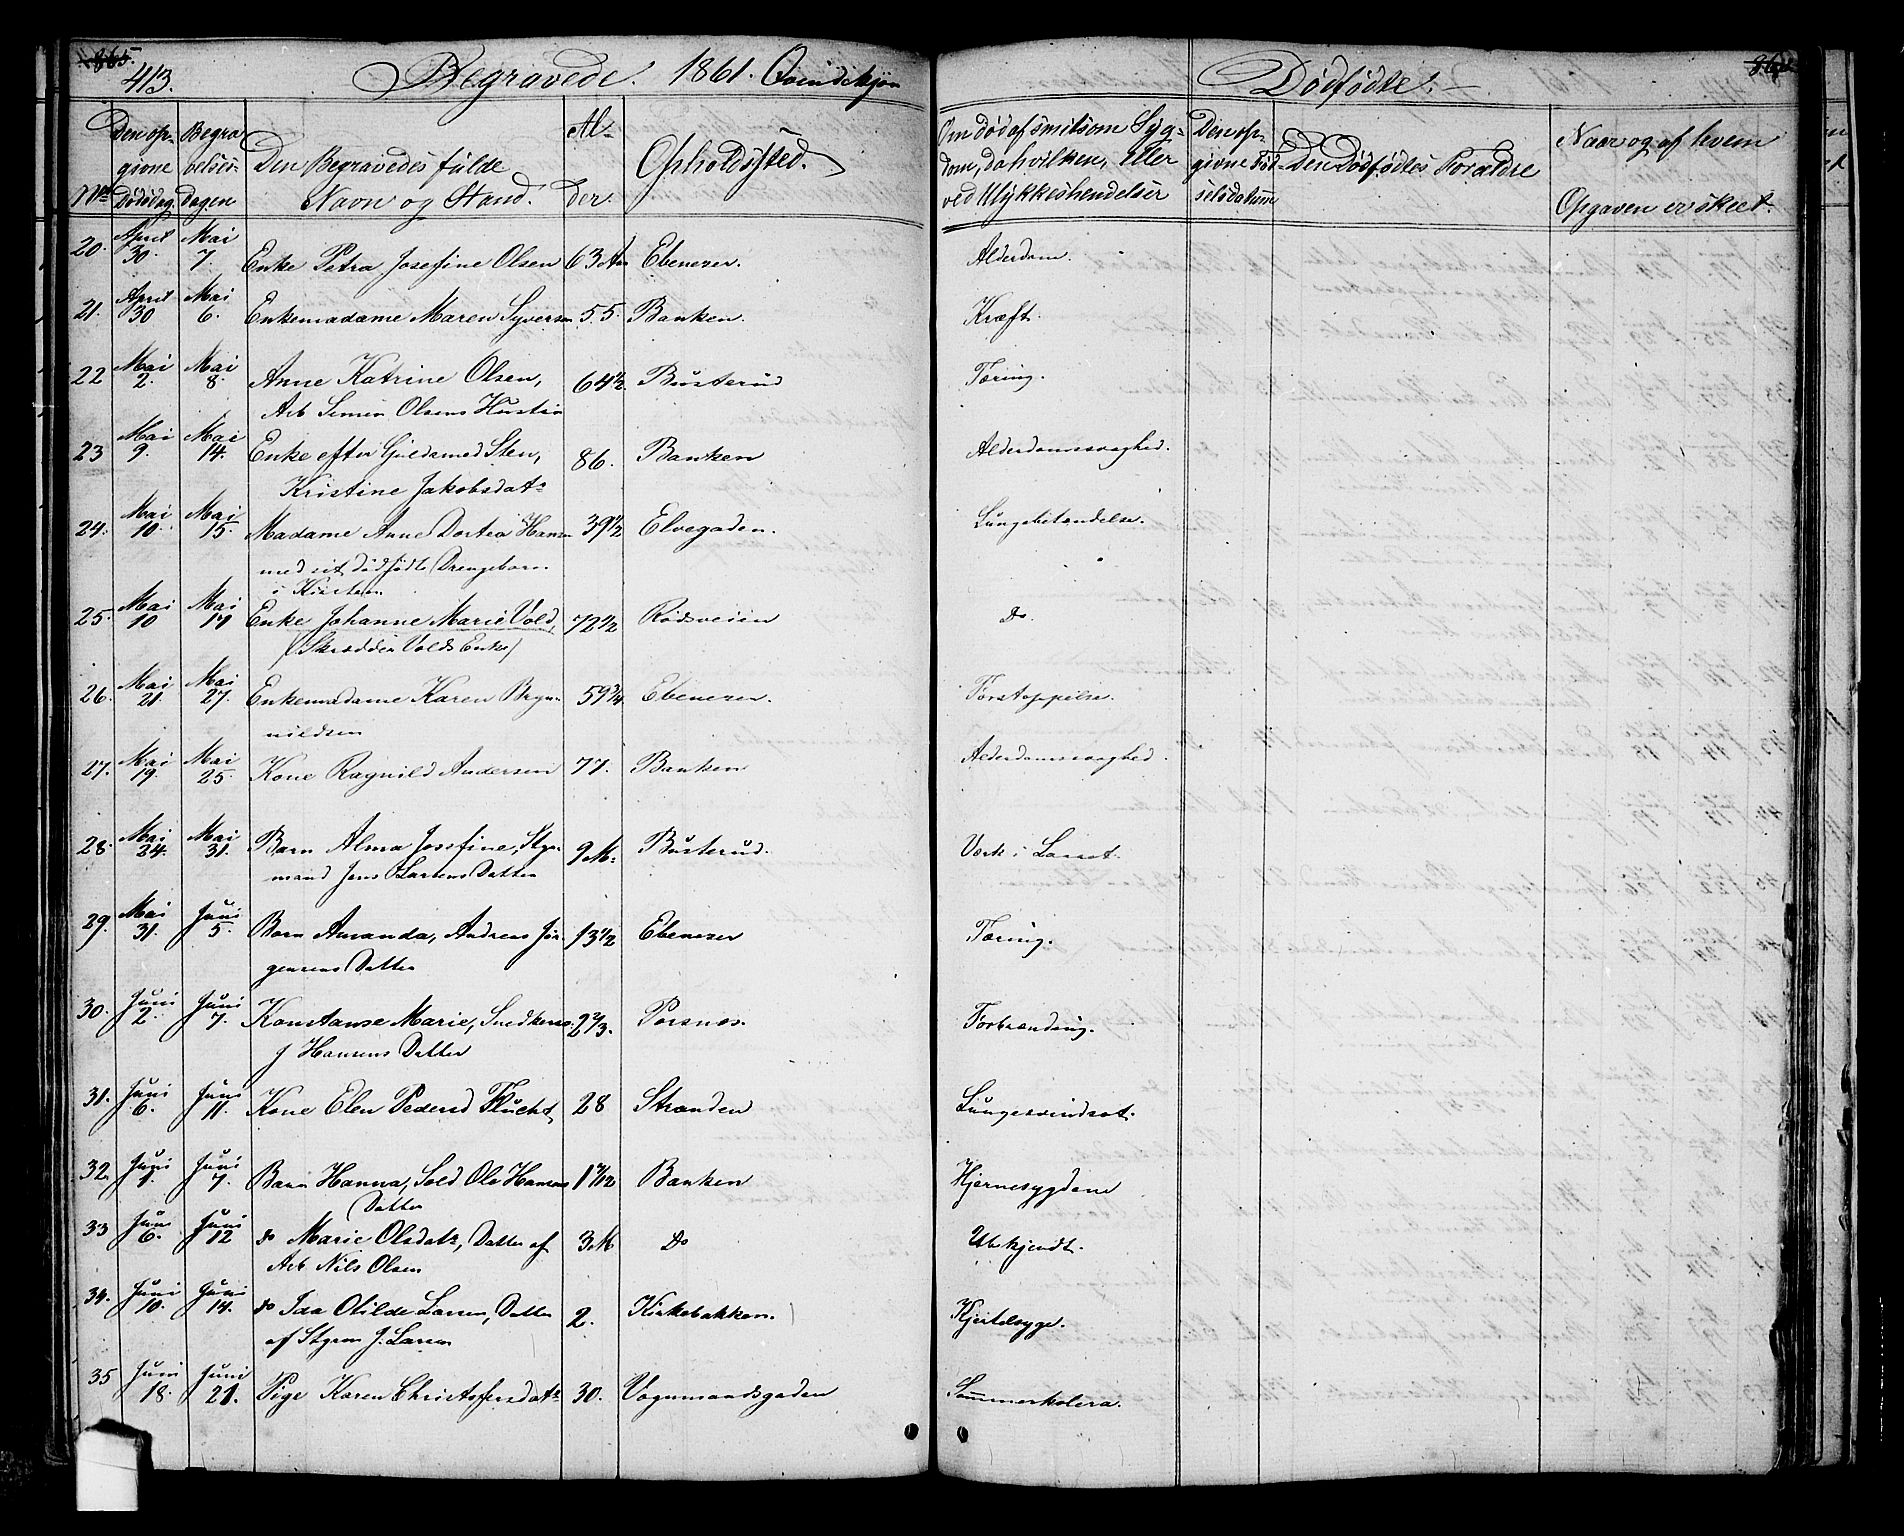 865.
413.
Begravede. 1861. Qvindekjøn
Dødfødte.
No
Den op-
givne
Dødsdag.
Begra
velses-
dagen
Den Begravedes fulde
Navn og Stand.
Al-
der.
Opholdssted.
Om død af smitsom Syg-
dom, da hvilken, Eller
ved Ulykkeshendelser
Den op-
givne Fød
selsdatum
Den Dødfødtes Forældre
Naar og af hvem
Opgaven er skeet.
20. April 30. Mai 7. Enke Petra Josefine Olsen 63 Aar Ebenezer. Alderdom.
21. April 30 Mai 6. Enkemadame Maren Syversen 55. Banken. Kræft.
22 Mai 2. Mai 8. Anne Katrine Olsen, 64 1/2. Busterud Tæring.
Arb Simen Olsens Hustru
23 Mai 9. Mai 14. Enke efter Guldsmed Sten, 86. Banken Alderdomssvaghed.
Kristine Jakobsdatr
24. Mai 10. Mai 15. Madame Anne Dortea Hansen 39 1/2 Elvegaden. Lungebetændelse.
med sit dødfødte Drengebarn
i Kisten
25. Mai 10 Mai 17 Enke Johanne Marie Vold, 72 1/2 Rødsveien do.
(Skrædder Volds Enke)
26. Mai 21. Mai 27. Enkemadame Karen Bryn- 59 3/4 Ebenezer. Forstoppelse.
nildsen
27. Mai 19. Mai 25. Kone Ragnild Andersen 77. Banken Alderdomssvaghed.
28. Mai 24. Mai 31. Barn Alma Josefine, Styr- 9 M: Busterud. Værk i Laaret.
mand Jens Larsens Datter
29. Mai 31. Juni 5. Barn Amanda, Andreas Jør- 13 1/2 Ebenezer Tæring.
gensens Datter
30. Juni 2. Juni 7. Konstanse Marie, Snedkersv. 2 2/3. Porsnes. Forbrænding.
J Hansens Datter
31. Juni 6. Juni 11. Kone Elen Pedersd Flucht, 28 Stranden Lungesvindsot.
32. Juni 1. Juni 7. Barn Hanna, Sold Ole Hansens 1 7/12 Banken Hjernesygdom
Datter
33 Juni 6. Juni 12 do Marie Olsdatr, Datter af 3 M do Ubekjendt.
Arb Nils Olsen
34. Juni 10. Juni 14. do Ida Otilde Larsen, Datter 2. Kirkebakken. Kjertelsyge.
af Styrm J. Larsen
35 Juni 18. Juni 21. Pige Karen Christofersdatr 30. Vognmandsgaden Sommerkolera.